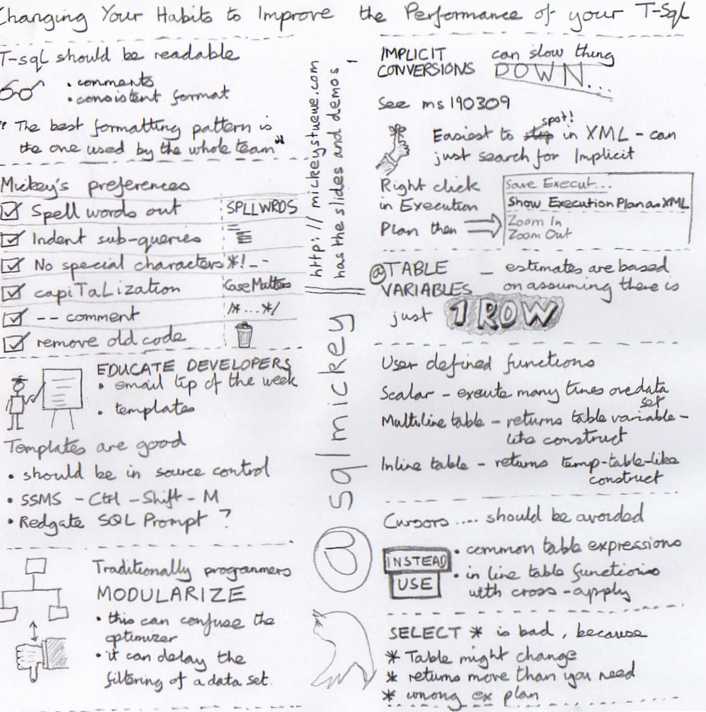 Changing Your Habits to Improve the Performance of your T-Sql
T-sql should be readable
• comments
• consistent format
"The best formatting pattern is
the one used by the whole team"
Mickey's preferences
Spell words out SPLLWRDS
Indent sub-queries
No special characters *!_-
capiTaLization CaseMatters
-- comment /*...*/
remove old code
EDUCATE DEVELOPERS
• email tip of the week
• templates
Templates are good
• should be in source control
• SSMS - Ctrl - Shift - M
• Redgate SQL Prompt ?
Traditionally programmers
MODULARIZE
• this can confuse the
optimizer
• it can delay the
filtering of a data set.
@sqlmickey
http://mickeystuewe.com
has the slides and demos!
IMPLICIT CONVERSIONS can slow thing
DOWN...
See ms 190309
Easiest to stop spot! in XML - can
just search for Implicit
Right click
in Execution
Plan then
Save Execut...
Show Execution Plan as XML
Zoom In
Zoom Out
@TABLE
VARIABLES _ estimates are based
on assuming there is
just 1 ROW
User defined functions
Scalar - execute many times over data
set
Multiline table - returns table variable-
like construct
Inline table - returns temp-table-like
construct
Cursors .... should be avoided
INSTEAD
USE
• common table expressions
• in line table functions
with cross-apply
SELECT * is bad, because
* Table might change
* returns more than you need
* wrong ex plan